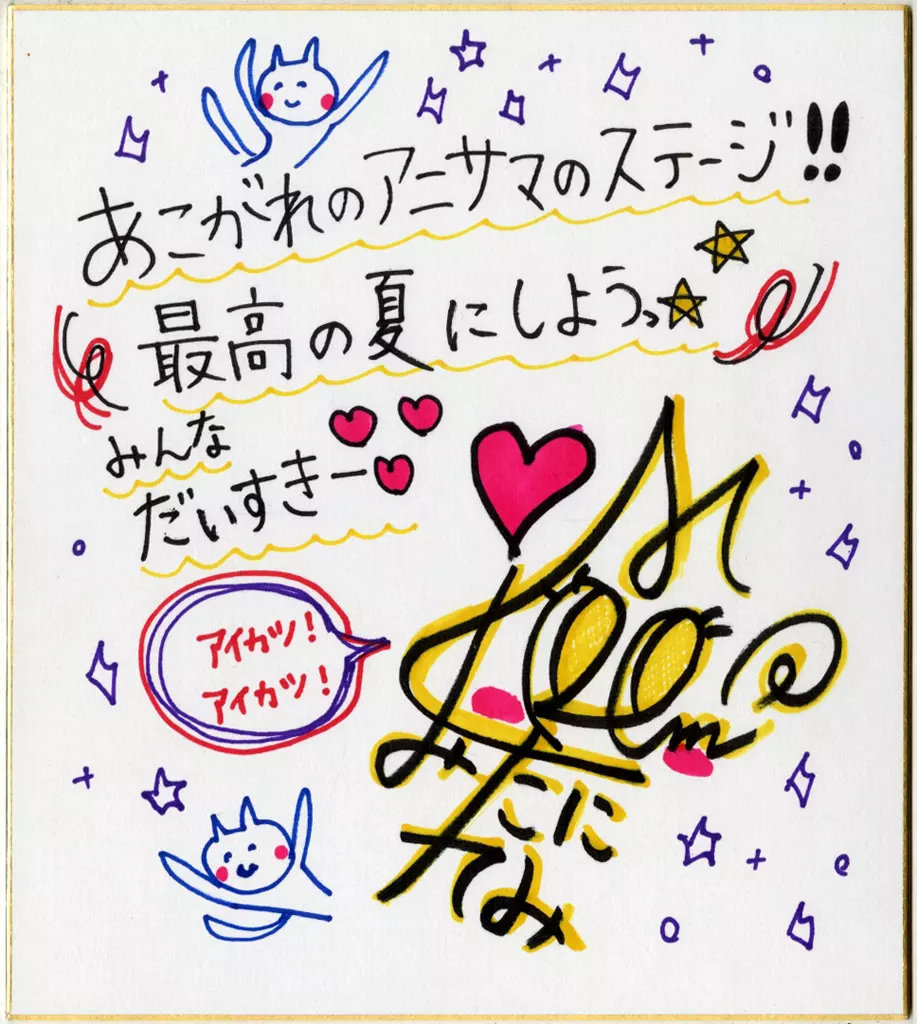 あこがれのアニサマのステージ!!
最高の夏にしようっ☆
みんな
だいすきー
アイカツ!
アイカツ!